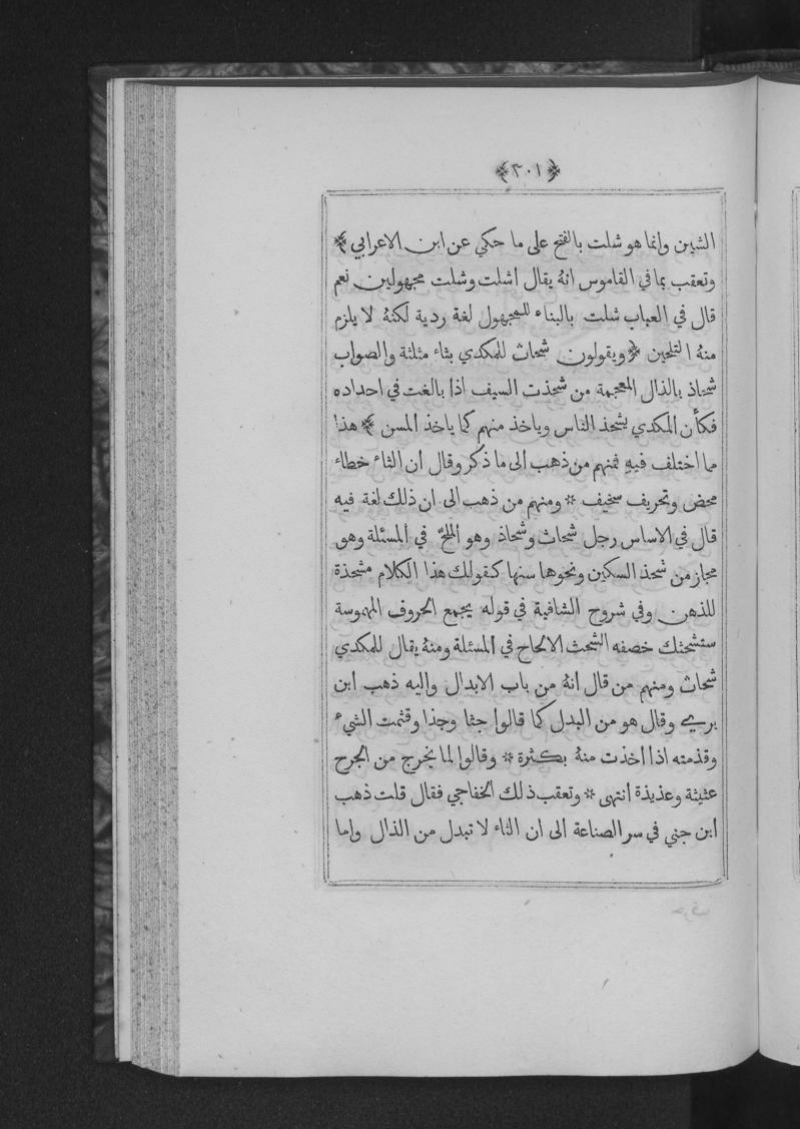 ﴿٢٠١﴾
الشين وانما هو شلت بالفتح على ما حكي عن ابن الاعرابي ﴾
وتعقب بما في القاموس انهُ يقال اشلت وشلت مجهولين نعم
قال في العباب شلت بالبناء للمجهول لغة ردية لكنهُ لا يلزم
منهُ التلحين ﴿ ويقولون شحاث للمكدي بثاء مثلثة والصواب
شحاذ بالذال المعجمة من شحذت السيف اذا بالغت في احداده
فكأن المكدي يشحذ الناس وياخذ منهم كما ياخذ المسن ﴾ هذا
مما اختلف فيهِ فمنهم من ذهب الى ما ذكر وقال ان الثاء خطاء
محض وتحريف سخيف * ومنهم من ذهب الى ان ذلك لغة فيه
قال في الاساس رجل شحاث وشحاذ وهو الملحّ في المسئلة وهو
مجاز من شحذ السكين ونحوها سنها كقولك هذا الكلام مشحذة
للذهن وفي شروح الشافية في قوله يجمع الحروف المهموسة
ستشحثك خصفه الشحث الالحاح في المسئلة ومنهُ يقال للمكدي
شحاث ومنهم من قال انهُ من باب الابدال واليه ذهب ابن
بري وقال هو من البدل كما قالوا جثا وجذا وقثمت الشيء
وقذمته اذا اخذت منهُ بكثرة * وقالوا لما يخرج من الجرح
غثيثة وغذيذة انتهى * وتعقب ذلك الخفاجي فقال قلت ذهب
ابن جني في سر الصناعة الى ان الثاء لا تبدل من الذال واما